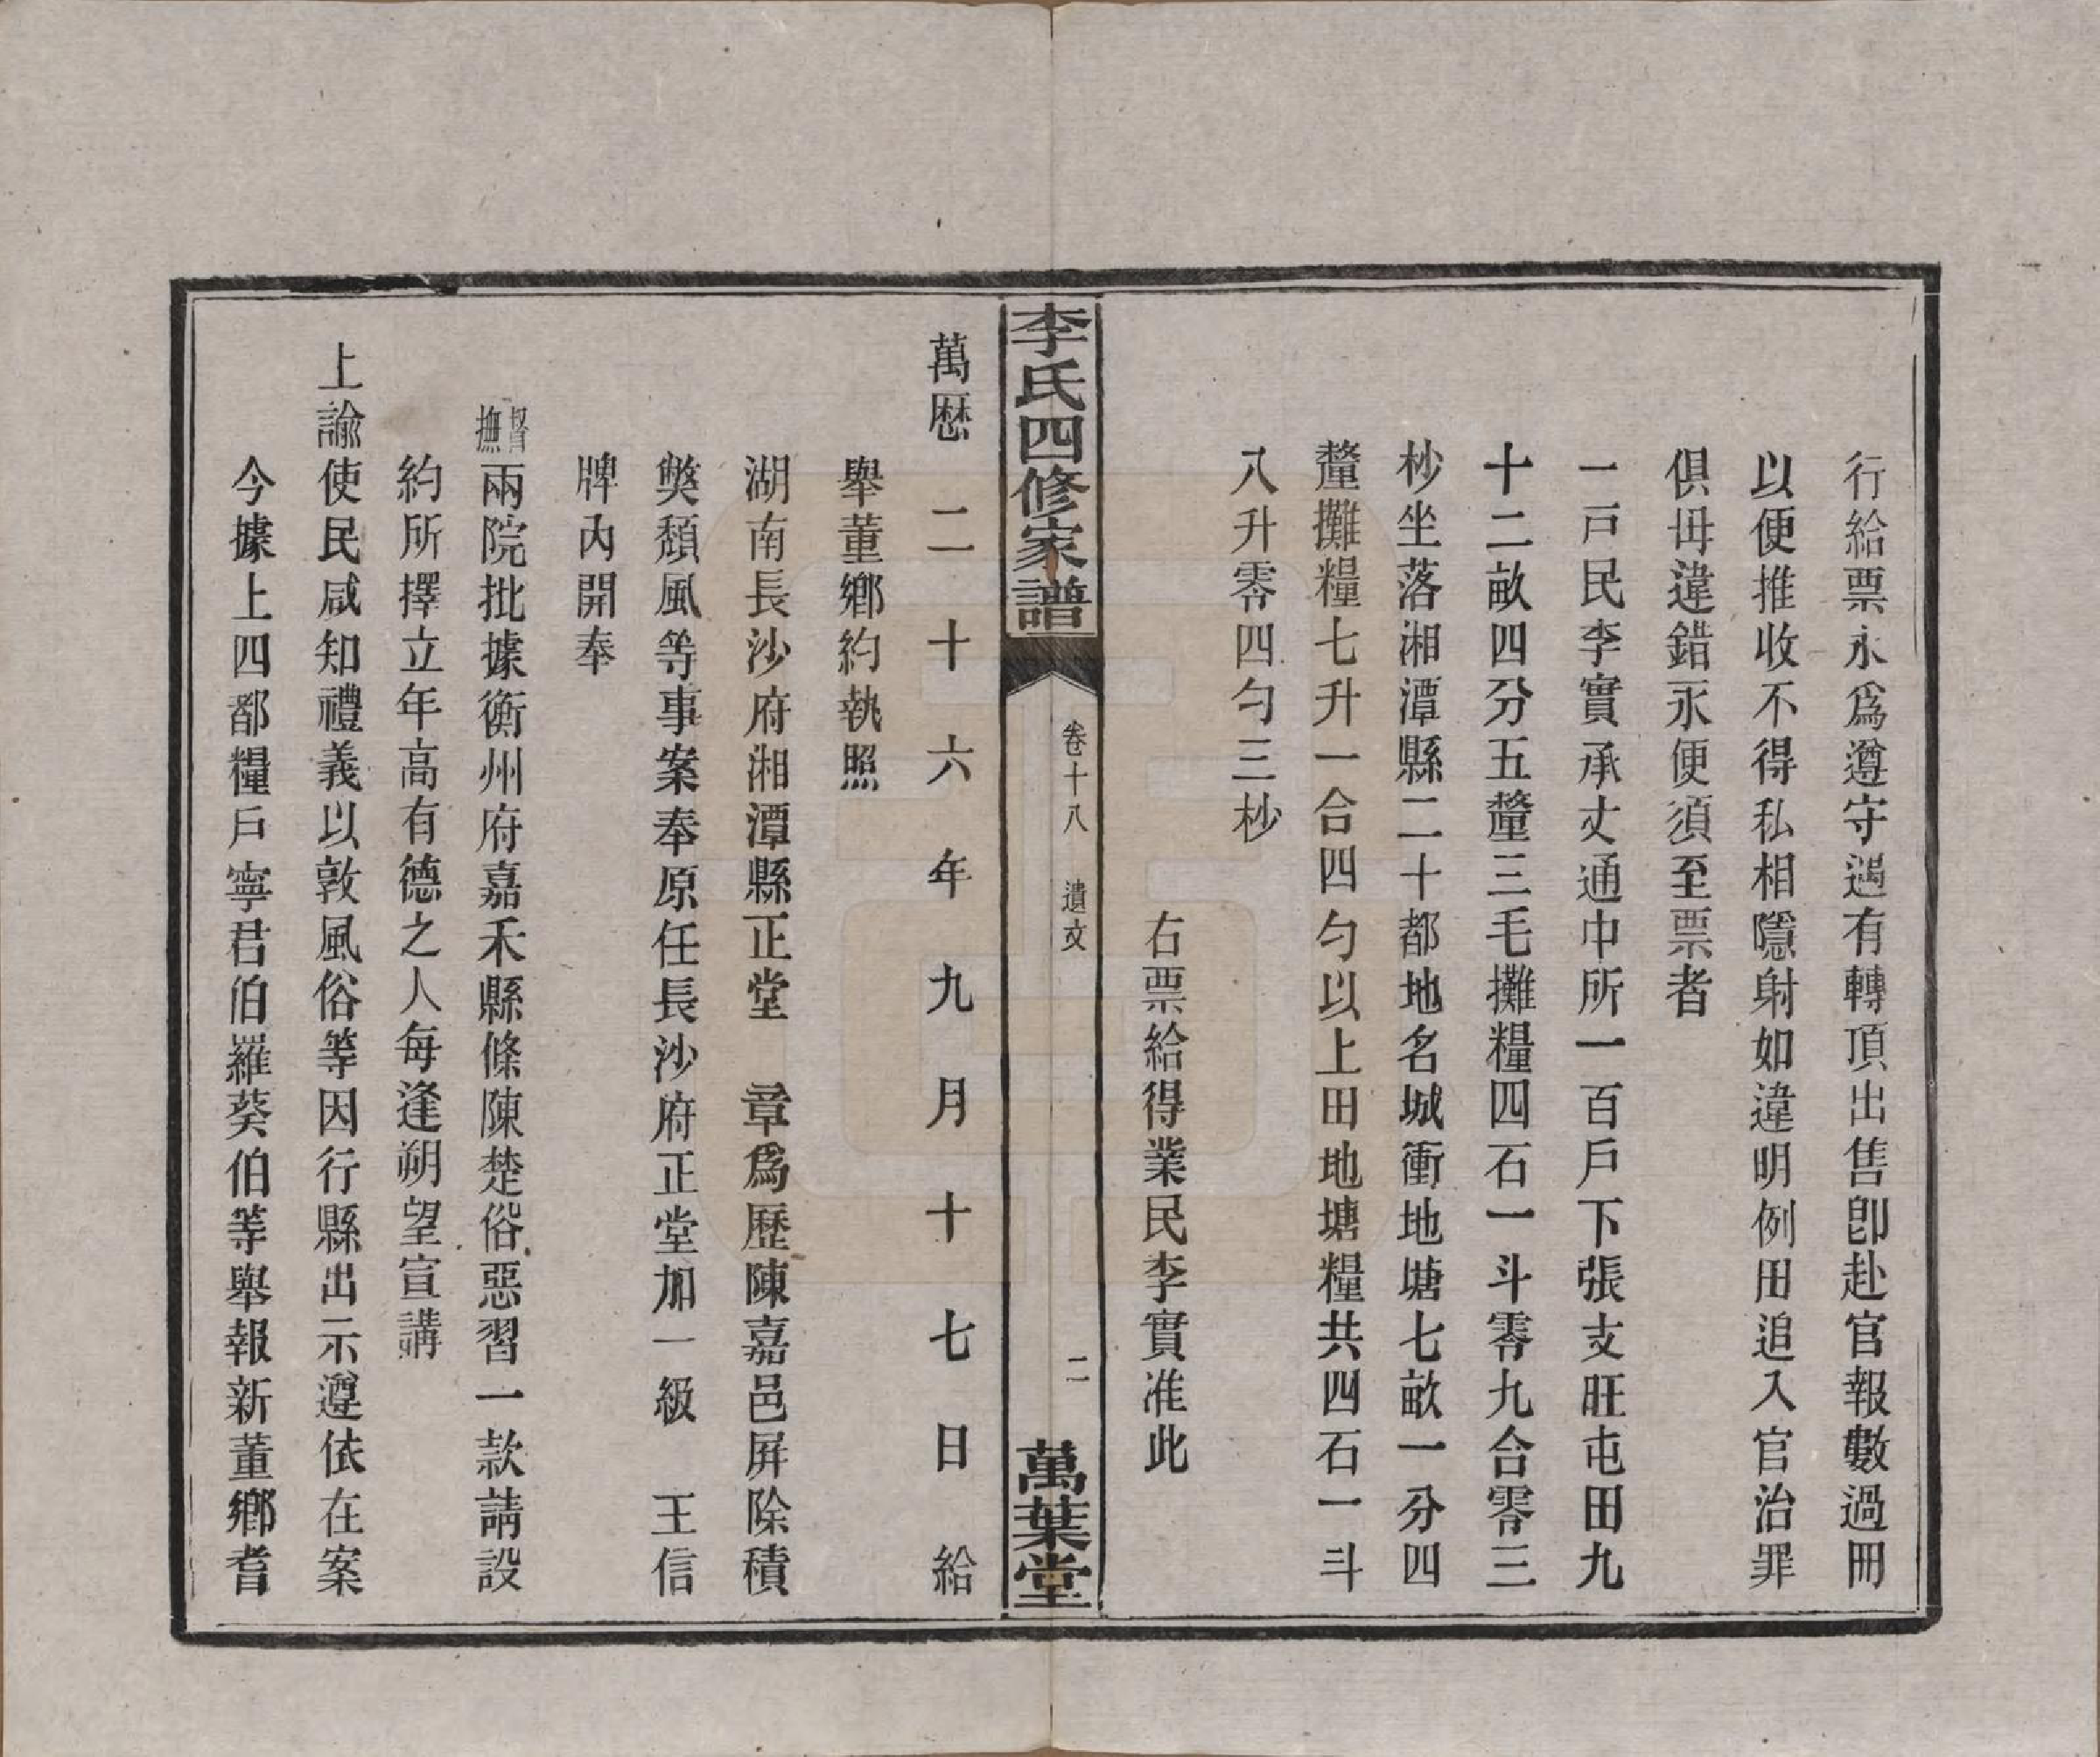 行給票永爲遵守遇有轉頂出售卽赴官報數過冊
以便推收不得私相隱射如違明例田追入官治罪
俱毋違錯永便須至票者
一戸民李實承丈通中所一百戶下張支旺屯田九
十二畝四分五釐三毛攤糧四石一斗零九合零三
杪坐落湘潭縣二十都地名城衝地塘七畝一分四
釐攤糧七升一合四勺以上田地塘糧共四石一斗
八升零四勺三杪
右票給得業民李實准此
李氏四修家譜
卷十八 遺文
二
萬葉堂
萬厯二十六年九月十七日給
舉董鄉約執照
湖南長沙府湘潭縣正堂 章爲歷陳嘉邑屏除積
獘頹風等事案奉原任長沙府正堂加一級 王信
牌內開奉
督撫兩院批據衡州府嘉禾縣條陳楚俗惡習一款請設
約所擇立年高有德之人每逢朔望宣講
上諭使民咸知禮義以敦風俗等因行縣出示遵依在案
今據上四都糧戶寧君伯羅葵伯等舉報新董鄉耆